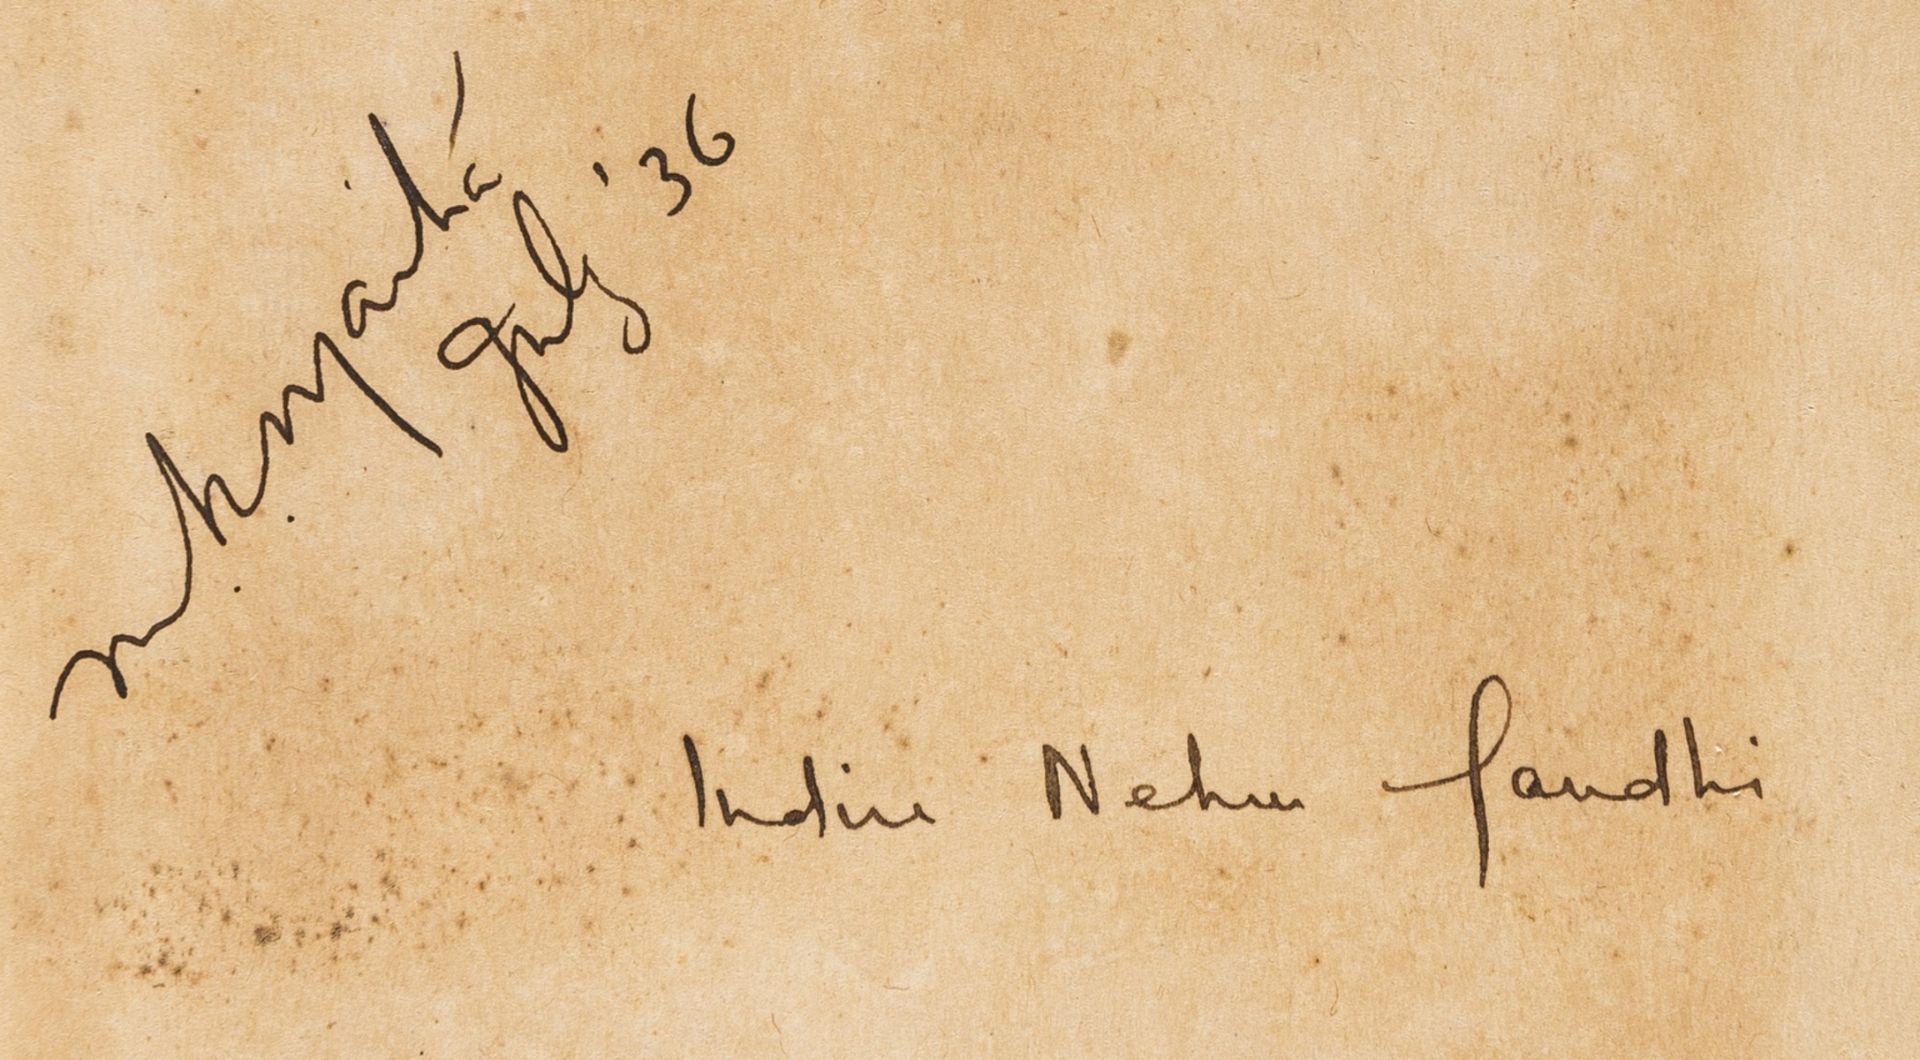 July '36
Indira Nehru Gandhi